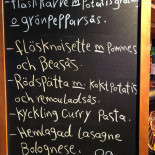 -Fläskkarré m Potatisgratäng
o grönpepparsås.
-Fläsknoisette m Pommes
och Beasås.
-Rödspätta m. kokt potatis
och remouladsås.
-Kyckling Curry Pasta.
-Hemlagad lasagne
Bolognese.